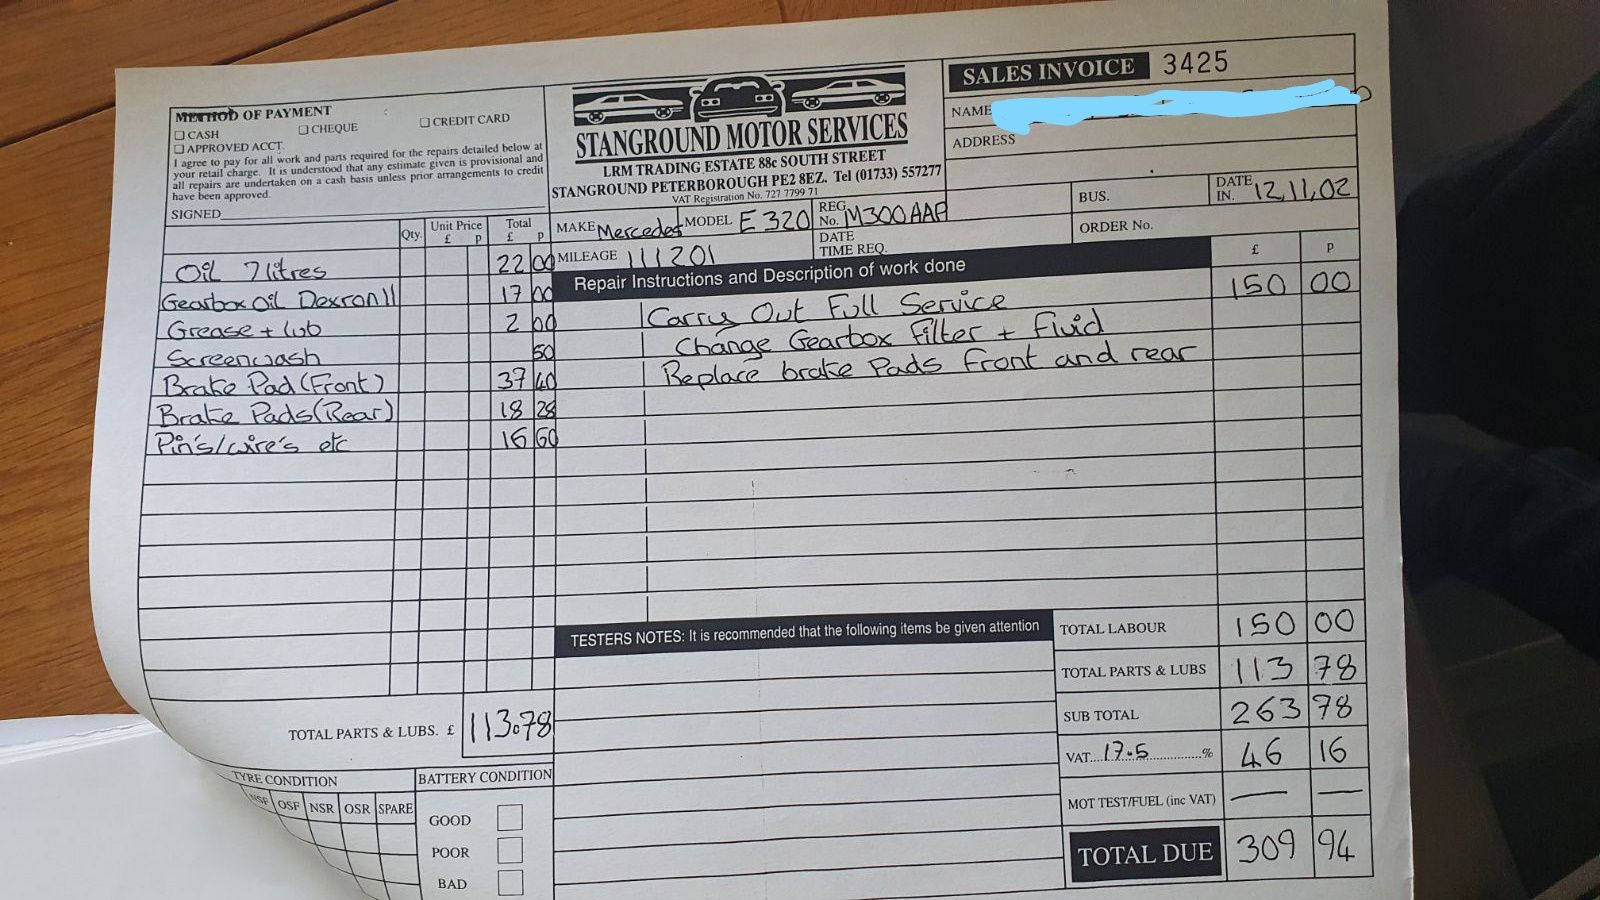 METHOD OF PAYMENT
CASH CHEQUE CREDIT CARD
APPROVED ACCT.
I agree to pay for all work and parts required for the repairs detailed below at
your retail charge. It is understood that any estimate given is provisional and
all repairs are undertaken on a cash basis unless prior arrangements to credit
have been approved.
SIGNED
STANGROUND MOTOR SERVICES
LRM TRADING ESTATE 88c SOUTH STREET
STANGROUND PETERBOROUGH PE2 8EZ. Tel (01733) 557277
VAT Registration No. 727 7799 71
SALES INVOICE 3425
NAME
ADDRESS
BUS. DATE IN. 12,11,02
ORDER No.
MAKE Mercedes MODEL E 320 REG No. M300AAP
MILEAGE 111201 DATE TIME REQ.
Qty. Unit Price £ p Total £ p
Oil 7 litres 22 00
Gearbox Oil Dexron II 17 00
Grease + lub 2 00
Screenwash 50
Brake Pad (Front) 37 40
Brake Pads (Rear) 18 28
Pin's/wire's etc 16 60
TOTAL PARTS & LUBS. £ 113.78
Repair Instructions and Description of work done £ p
Carry Out Full Service 150 00
Change Gearbox Filter + Fluid
Replace brake Pads front and rear
TESTERS NOTES: It is recommended that the following items be given attention
TOTAL LABOUR 150 00
TOTAL PARTS & LUBS 113 78
SUB TOTAL 263 78
VAT....17.5..............% 46 16
MOT TEST/FUEL (inc VAT) — —
TOTAL DUE 309 94
TYRE CONDITION
NSF OSF NSR OSR SPARE
BATTERY CONDITION
GOOD
POOR
BAD